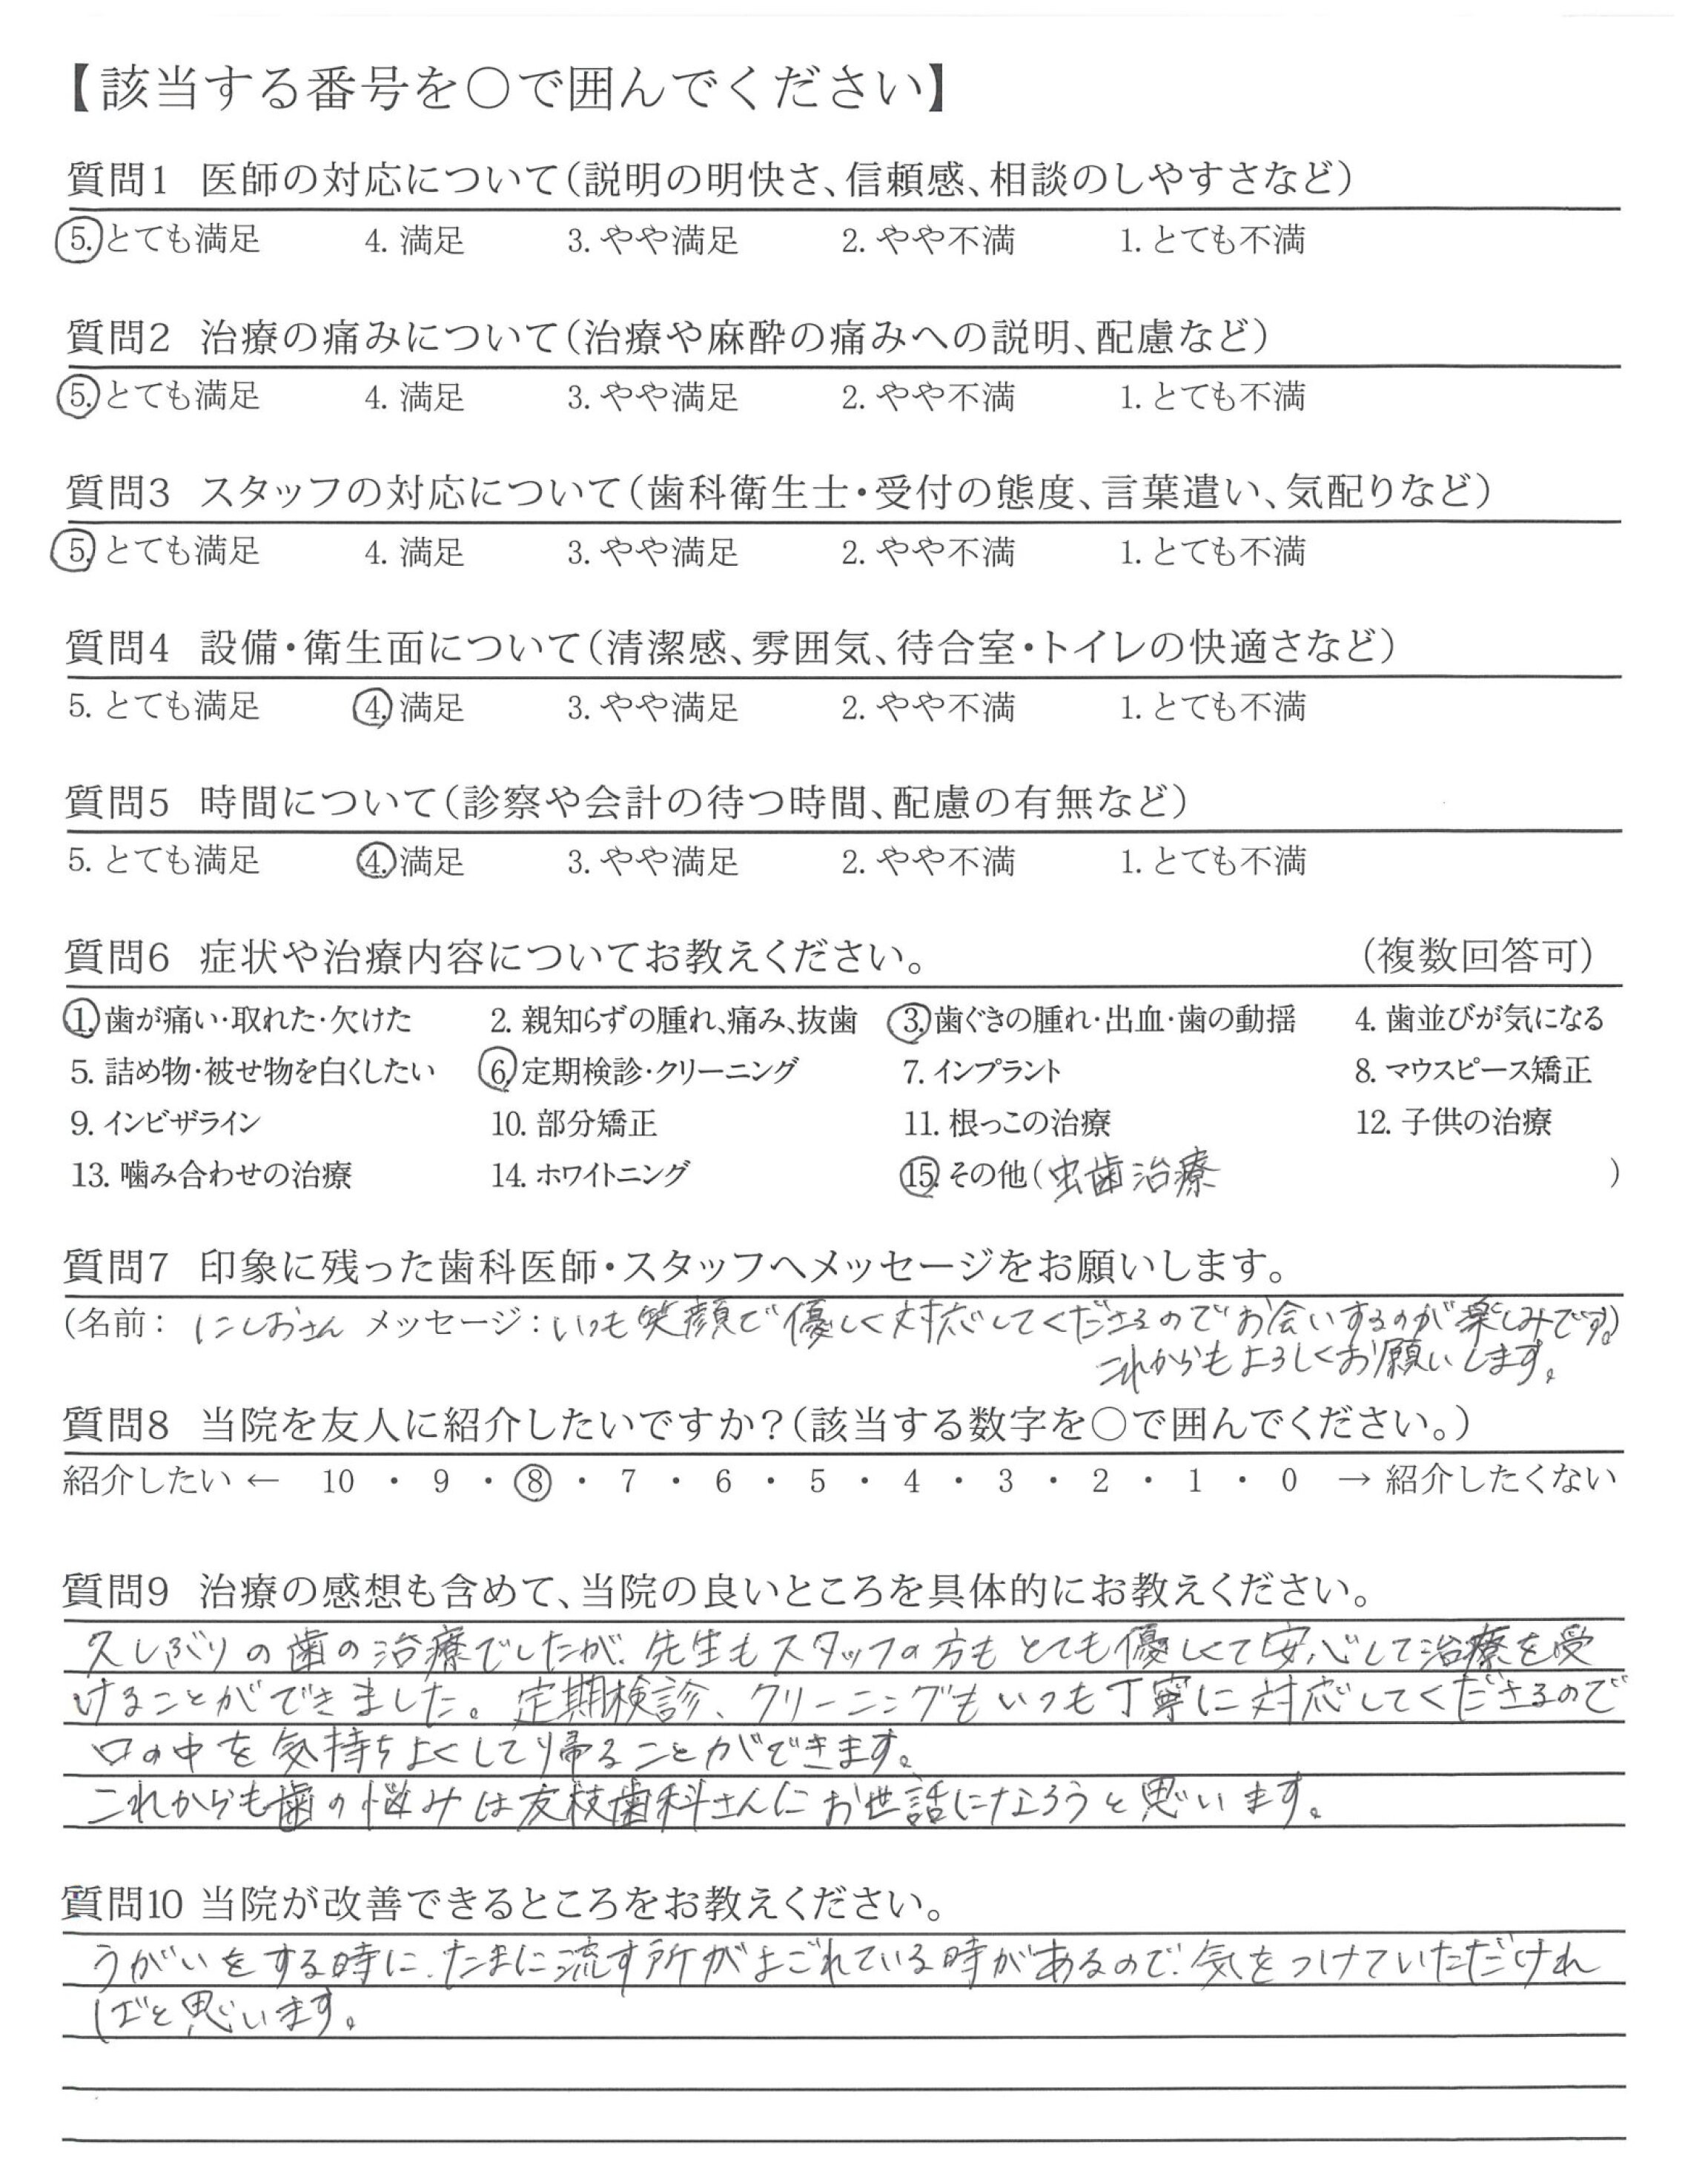 【該当する番号を〇で囲んでください】
質問1 医師の対応について(説明の明快さ、信頼感、相談のしやすさなど)
5. とても満足 4. 満足 3. やや満足 2. やや不満 1. とても不満
質問2 治療の痛みについて(治療や麻酔の痛みへの説明、配慮など)
5. とても満足 4. 満足 3. やや満足 2. やや不満 1. とても不満
質問3 スタッフの対応について(歯科衛生士・受付の態度、言葉遣い、気配りなど)
5. とても満足 4. 満足 3. やや満足 2. やや不満 1. とても不満
質問4 設備・衛生面について(清潔感、雰囲気、待合室・トイレの快適さなど)
5. とても満足 4. 満足 3. やや満足 2. やや不満 1. とても不満
質問5 時間について(診察や会計の待つ時間、配慮の有無など)
5. とても満足 4. 満足 3. やや満足 2. やや不満 1. とても不満
質問6 症状や治療内容についてお教えください。 (複数回答可)
1. 歯が痛い・取れた・欠けた 2. 親知らずの腫れ、痛み、抜歯 3. 歯ぐきの腫れ・出血・歯の動揺 4. 歯並びが気になる
5. 詰め物・被せ物を白くしたい 6. 定期検診・クリーニング 7. インプラント 8. マウスピース矯正
9. インビザライン 10. 部分矯正 11. 根っこの治療 12. 子供の治療
13. 噛み合わせの治療 14. ホワイトニング 15. その他(虫歯治療 )
質問7 印象に残った歯科医師・スタッフへメッセージをお願いします。
(名前: にしおさん メッセージ:いつも笑顔で優しく対応してくださるのでお会いするのが楽しみです。)
これからもよろしくお願いします。
質問8 当院を友人に紹介したいですか?(該当する数字を〇で囲んでください。)
紹介したい ← 10 ・ 9 ・ 8 ・ 7 ・ 6 ・ 5 ・ 4 ・ 3 ・ 2 ・ 1 ・ 0 → 紹介したくない
質問9 治療の感想も含めて、当院の良いところを具体的にお教えください。
久しぶりの歯の治療でしたが、先生もスタッフの方もとても優しくて安心して治療を受
けることができました。定期検診、クリーニングもいつも丁寧に対応してくださるので
口の中を気持ちよくして帰ることができます。
これからも歯の悩みは友枝歯科さんにお世話になろうと思います。
質問10 当院が改善できるところをお教えください。
うがいをする時に、たまに流す所がよごれている時があるので、気をつけていただけれ
ばと思います。